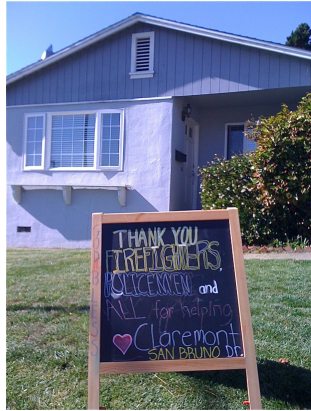 THANK YOU
FIREFIGHTERS,
POLICEMEN and
ALL for helping
Claremont
SAN BRUNO DR.